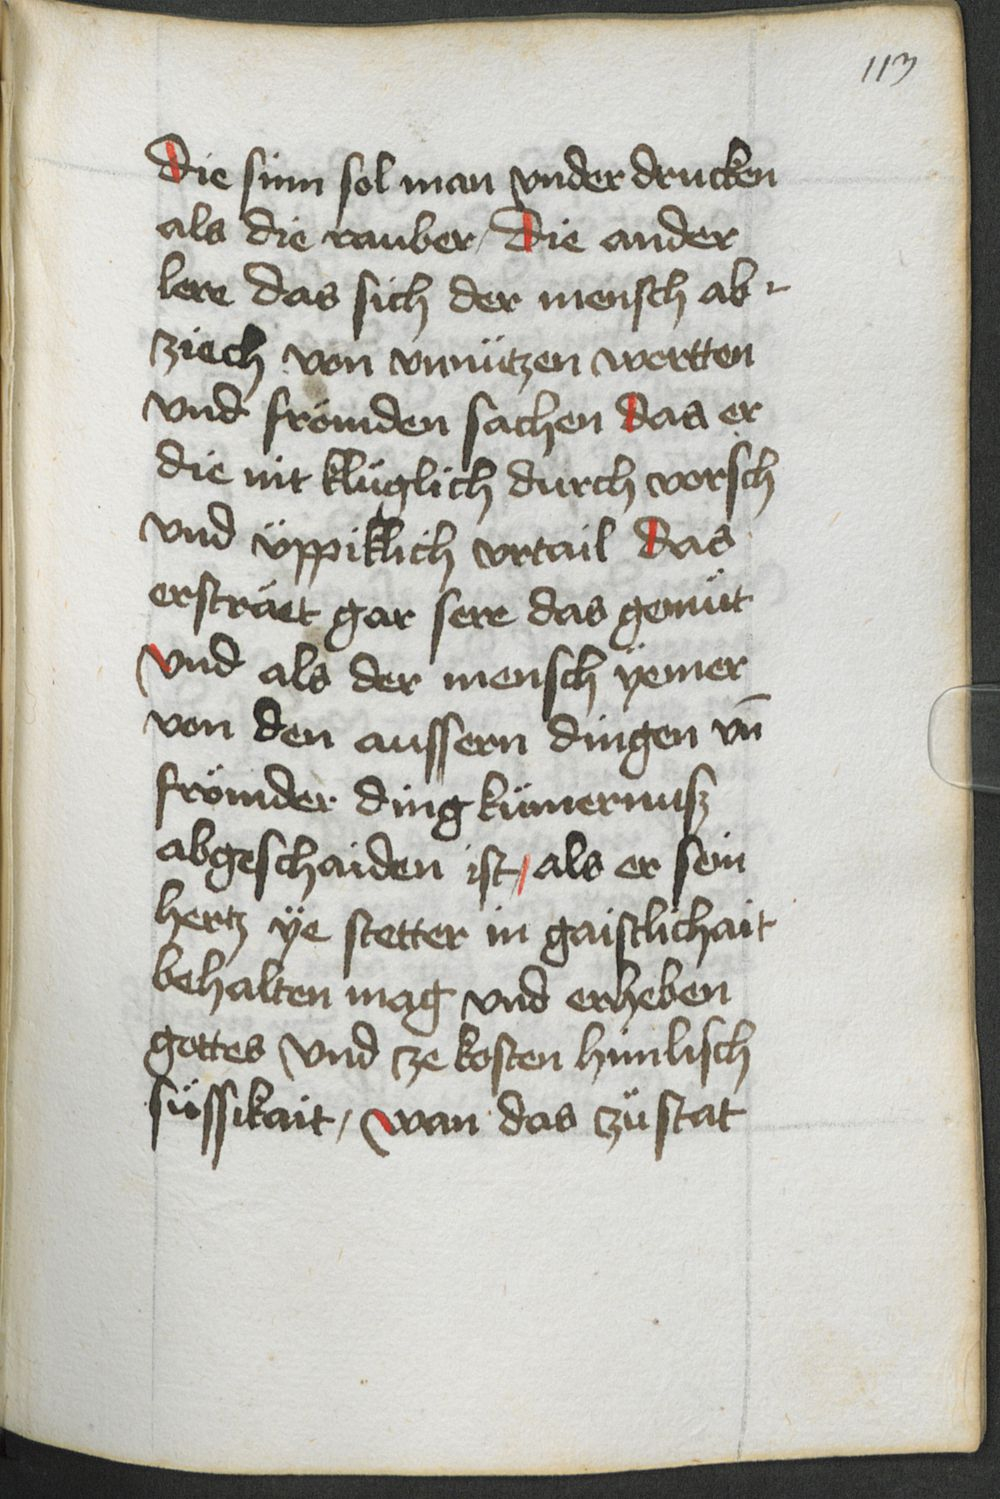 113
Die sinn sol man vnder drucken
als die rauber / Die ander
lere das sich der mensch ab-
ziech von vnnützen wertten
vnd frömden sachen das er
die nit klüglich durch vorsch
vnd üppiklich vrtail das
erströet gar sere das gemüt
Vnd als der mensch ÿemer
von den aussern dingen vn̄
frömder ding kümernuß
abgeschaiden ist / als er sein
hertz ÿe stetter in gaistlichait
behalten mag vnd erheben
gottes vnd ze kosten himlisch
süssikait / wan das zü stat